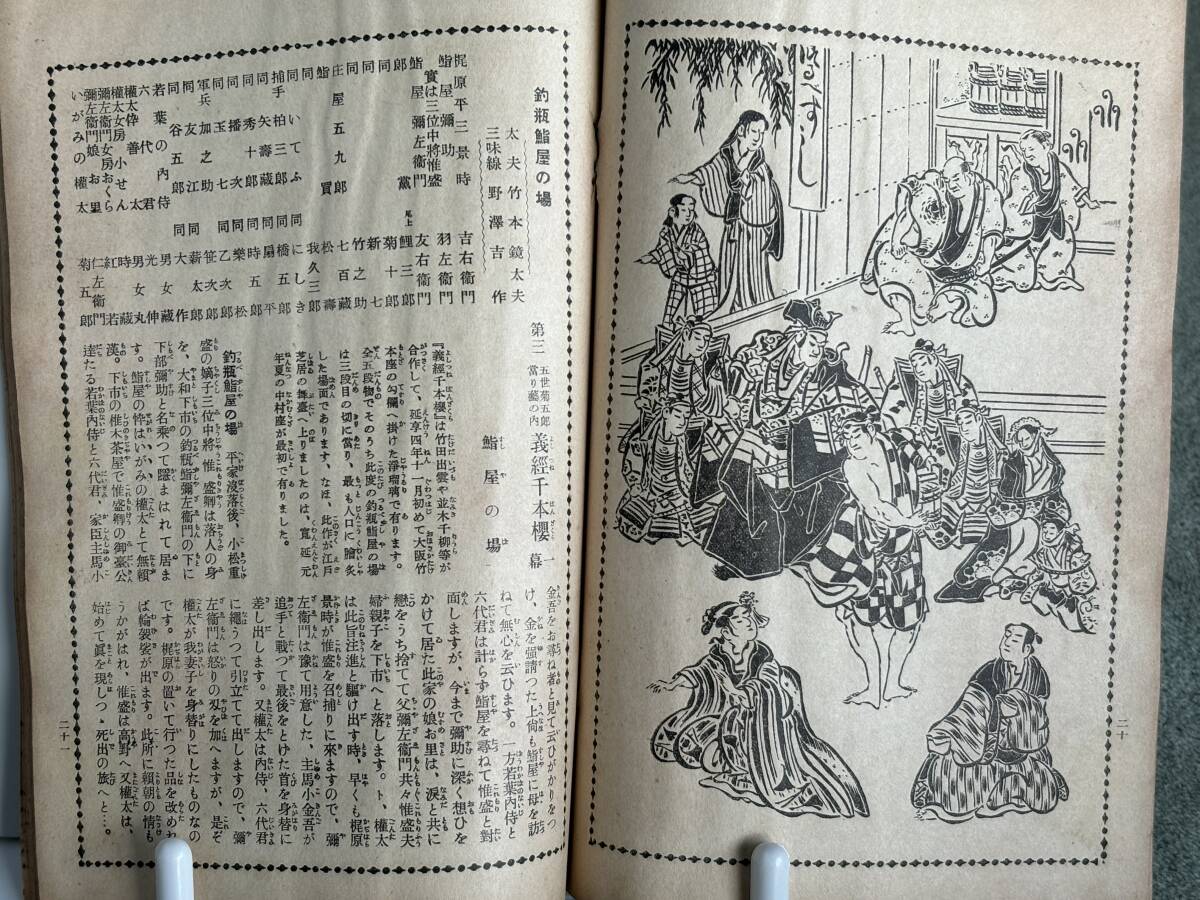 つるべすし
二十
釣瓶鮨屋の場
太夫 竹本鏡太夫
三味線 野澤吉作
梶原平三景時 吉右衛門
鮨屋彌助
實は三位中將惟盛 羽左衛門
鮨屋彌左衛門 友右衛門
郎黨 尾上鯉三郎
同 菊十郎
同 新七
同 竹之助
庄屋五九郎 七百藏
鮨買 松壽
同 我久三郎
同 いてふ 同 にしき
捕手 柏三郎 同 橋五郎
同 矢壽藏 同 扇平
同 秀十郎 同 時五郎
同 播次 同 樂松
同 玉七 同 乙次郎
軍兵 加之助 同 笹次郎
同 友江 同 薪太郎
同 谷五郎 同 大作
若葉の內侍 男女藏
六代君 光伸
權太伜善太 男女丸
權太女房小せん 時藏
彌左衛門女房おくら 紅若
彌左衛門娘お里 仁左衛門
いがみの權太 菊五郎
第三 五世菊五郎當り藝の內 義經千本櫻 一幕
鮨屋の場
『義經千本櫻』は竹田出雲や並木千柳等が
合作して、延享四年十一月初めて大阪竹
本座の勾欄へ掛けた淨瑠璃で有ります。
全五段物でそのうち此度の釣瓶鮨屋の場
は三段目の切に當り、最も人口に膾炙
した場面であります、なほ、此作が江戶
芝居の舞臺へ上りましたのは、寬延元
年夏の中村座が最初で有りました。
釣瓶鮨屋の場 平家沒落後、小松重
盛の嫡子三位中將惟盛卿は落人の身
を、大和下市の釣瓶鮨彌左衛門の下に
下部彌助と名乘つて隱まはれて居ま
す。鮨屋の悴はいがみの權太とて無賴
漢。下市の椎木茶屋で惟盛卿の御臺公
達たる若葉內侍と六代君、家臣主馬小
金吾をお尋ね者と見て云ひがかりをつ
け、金を强請つた上尙も鮨屋に母を訪
ねて無心を云ひます。一方若葉內侍と
六代君は計らず鮨屋を尋ねて惟盛と對
面しますが、今まで彌助に深く想ひを
かけて居た此家の娘お里は、淚と共に
戀をうち捨てて父彌左衛門共々惟盛夫
婦親子を下市へと落します。ト、權太
は此旨注進と驅け出す時、早くも梶原
景時が惟盛を召捕りに來ますので、彌
左衛門は豫て用意した、主馬小金吾が
追手と戰つて最後をとけた首を身替に
差し出します。又權太は內侍、六代君
に繩うつて引立てて出しますので、彌
左衛門は怒りの刄を加へますが、是ぞ
權太が我妻子を身替りにしたものなの
です。梶原の置いて行つた品を改めれ
ば輪袈裟が出ます。此所に賴朝の情も
うかがはれ、惟盛は高野へ又權太は、
始めて眞を現しつゝ死出の旅へと…。
二十一